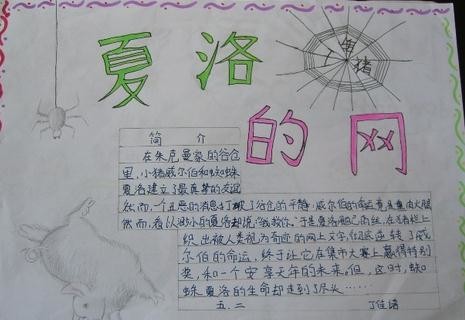 夏洛
的网
猪
简 介
在朱克曼家的谷仓
里,小猪威尔伯和蜘蛛
夏洛建立了最真挚的友谊
然而,一个丑恶的消息打破了谷仓的平静:威尔伯的命运竟是熏肉火腿
然而,看似渺小的夏洛却说:"我救你。"于是夏洛用自己的丝,在猪栏上
织出被人类视为奇迹的网上文字,彻底逆转了威
尔伯的命运,终于让它在集市大赛上赢得特别
奖,和一个安享天年的未来。但,这时,蜘
蛛夏洛的生命却走到了尽头……
五.二 丁佳